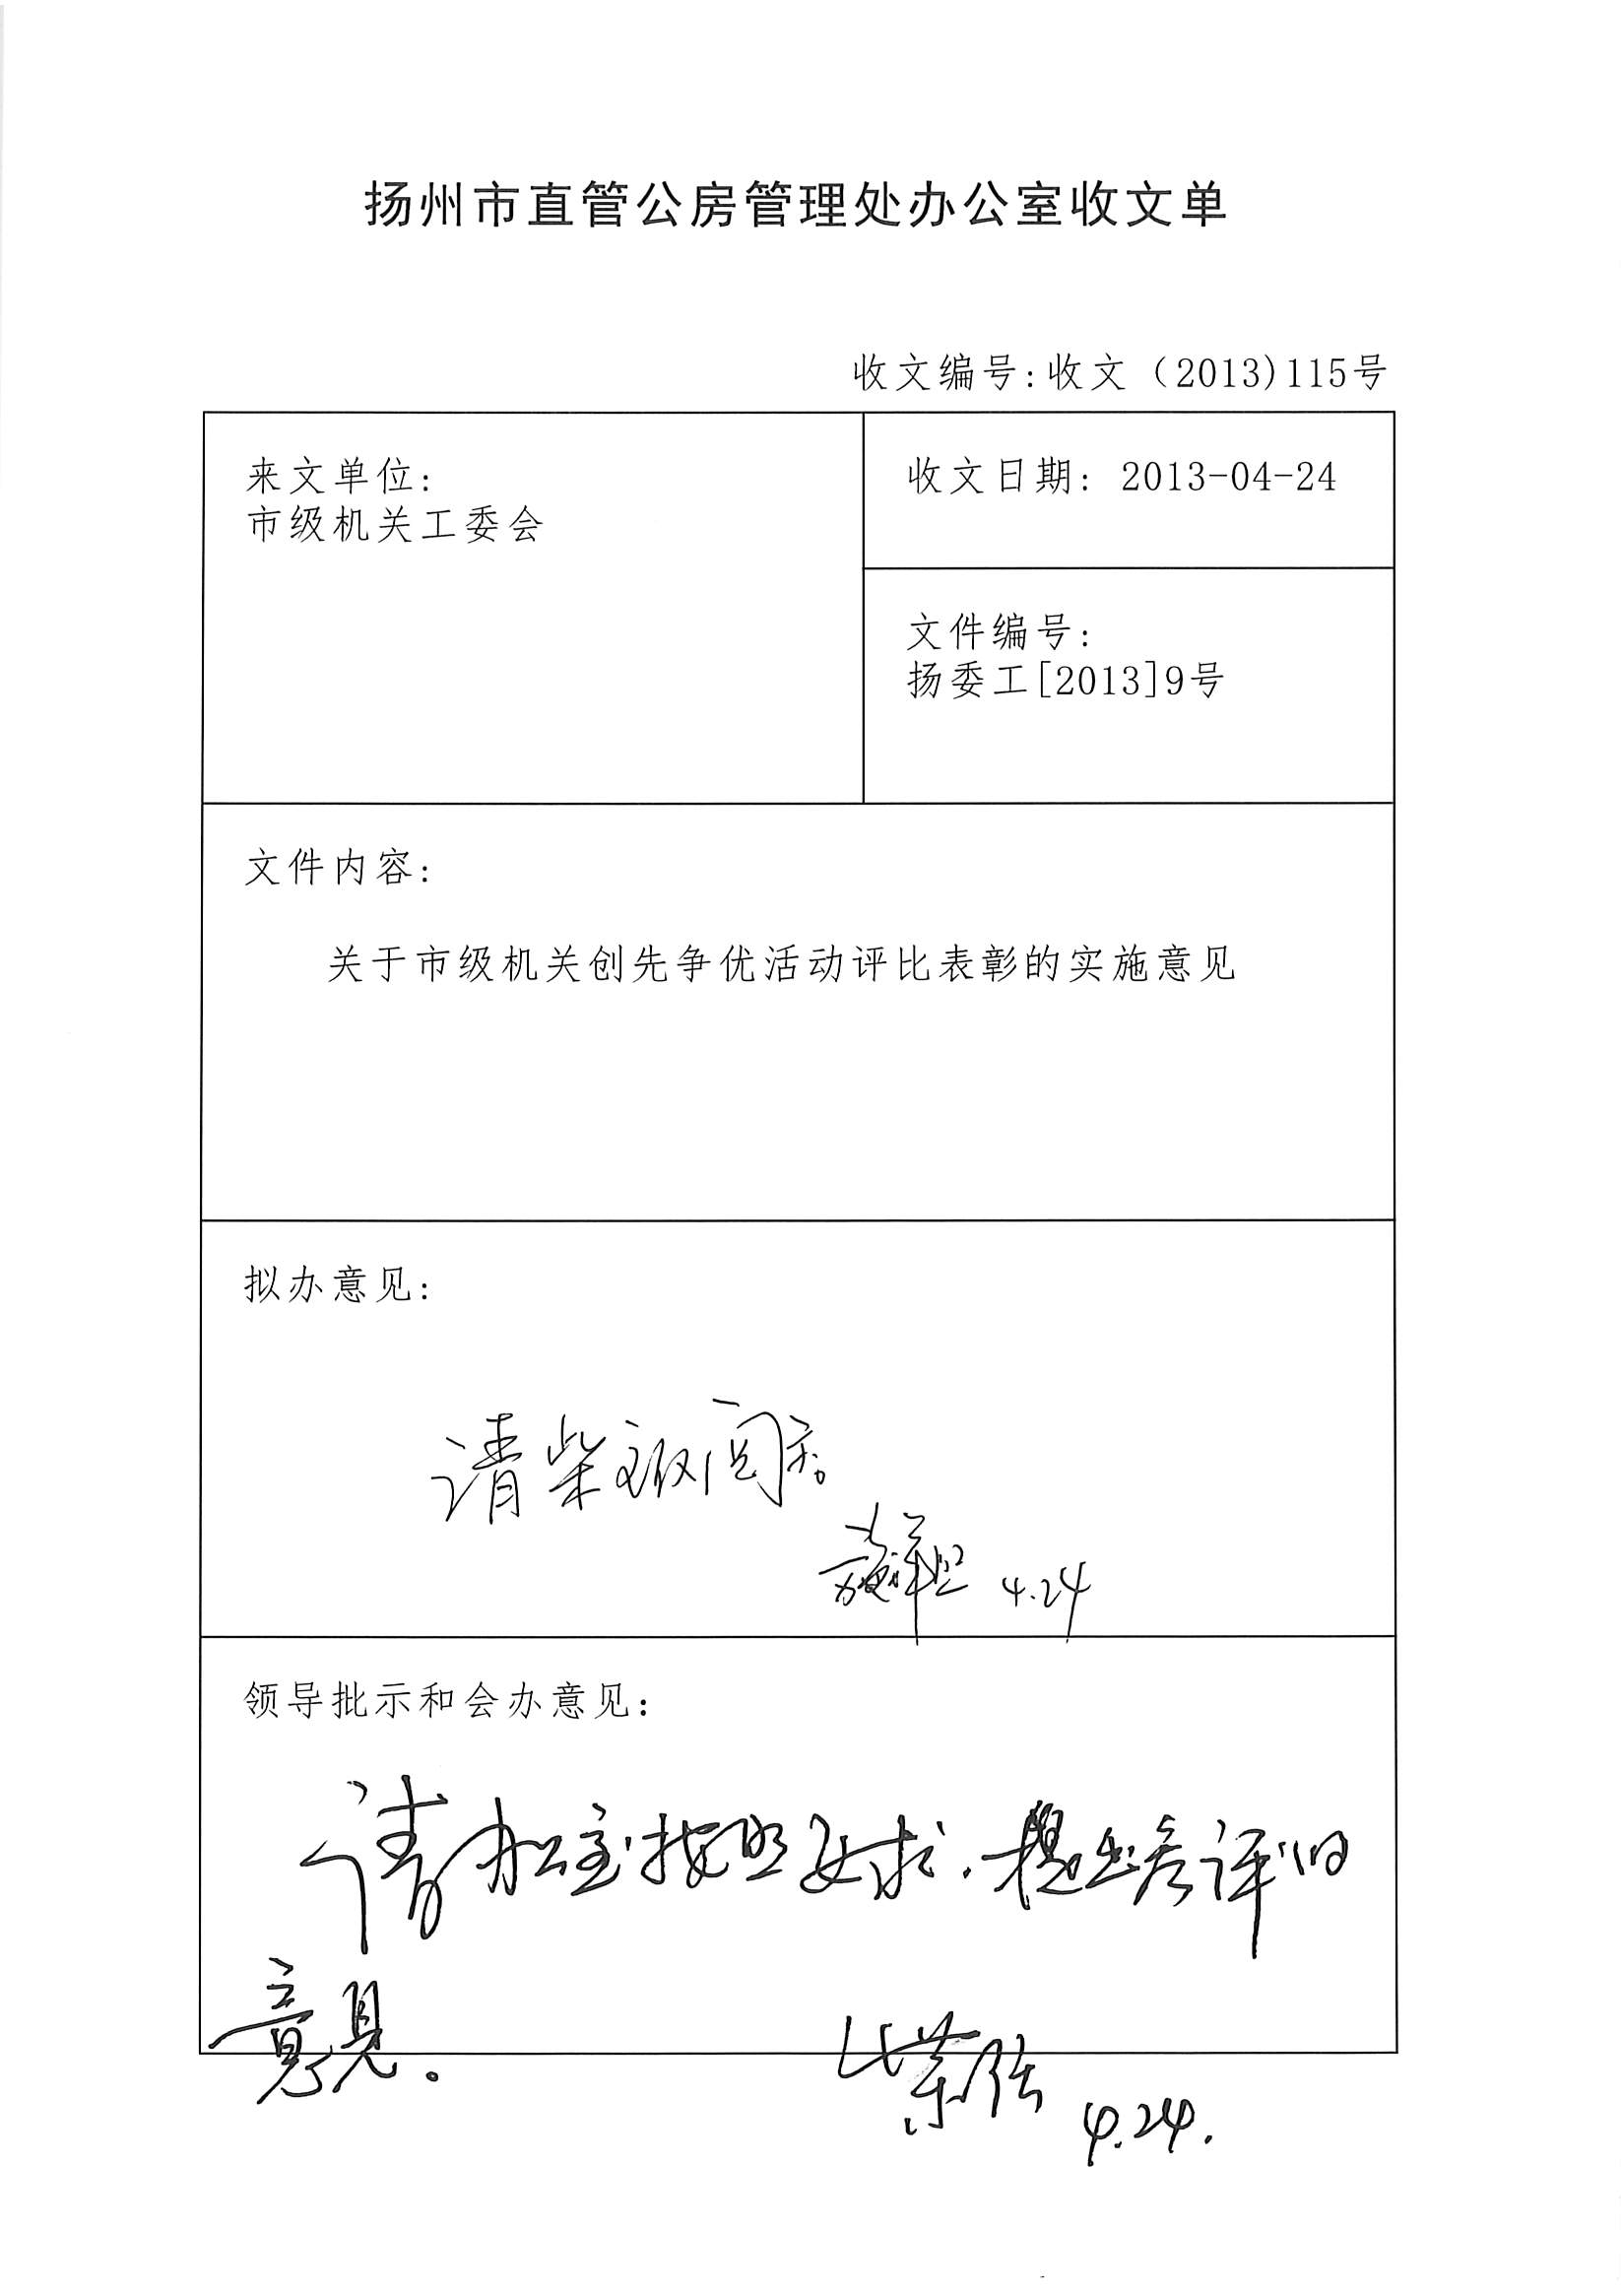 扬州市直管公房管理处办公室收文单
收文编号:收文（2013)115号
来文单位:
市级机关工委会
收文日期: 2013-04-24
文件编号:
扬委工[2013]9号
文件内容:
关于市级机关创先争优活动评比表彰的实施意见
拟办意见:
请柴主席阅示。
4.24
领导批示和会办意见:
请办公室按照要求,提出参评的
意见。
4.24.